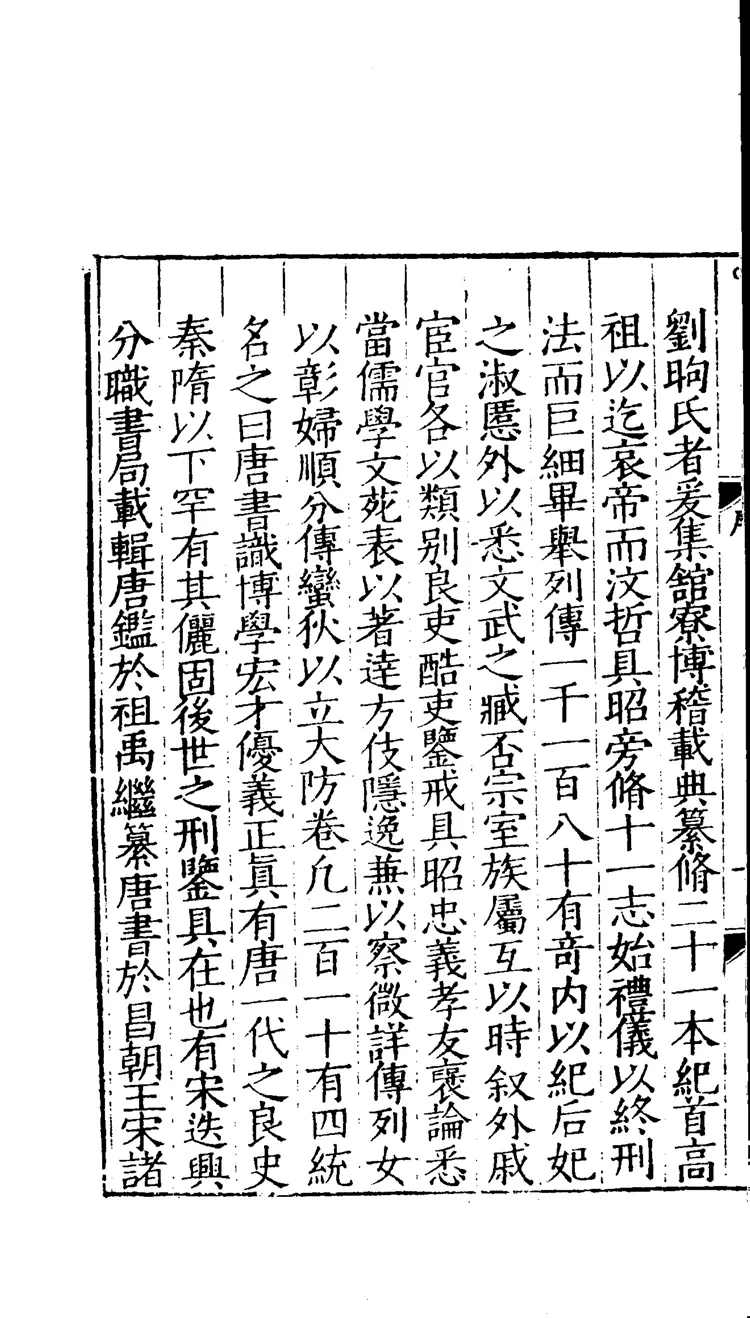 劉昫氏者爰集舘寮博稽載典纂脩二十一本紀首高
祖以迄哀帝而汶哲具昭旁脩十一志始禮儀以終刑
法而巨細畢舉列傳一千一百八十有竒内以紀后妃
之淑慝外以悉文武之臧否宗室族屬互以時叙外戚
宦官各以類别良吏酷吏鑒戒具昭忠義孝友襃論悉
當儒學文苑表以著逹方伎隱逸兼以察微詳傳列女
以彰婦順分傳蠻狄以立大防卷凡二百一十有四統
名之曰唐書識博學宏才優義正眞有唐一代之良史
秦隋以下罕有其儷固後世之刑鑒具在也有宋迭興
分職書局載輯唐鑑於祖禹繼纂唐書於昌朝王宋諸